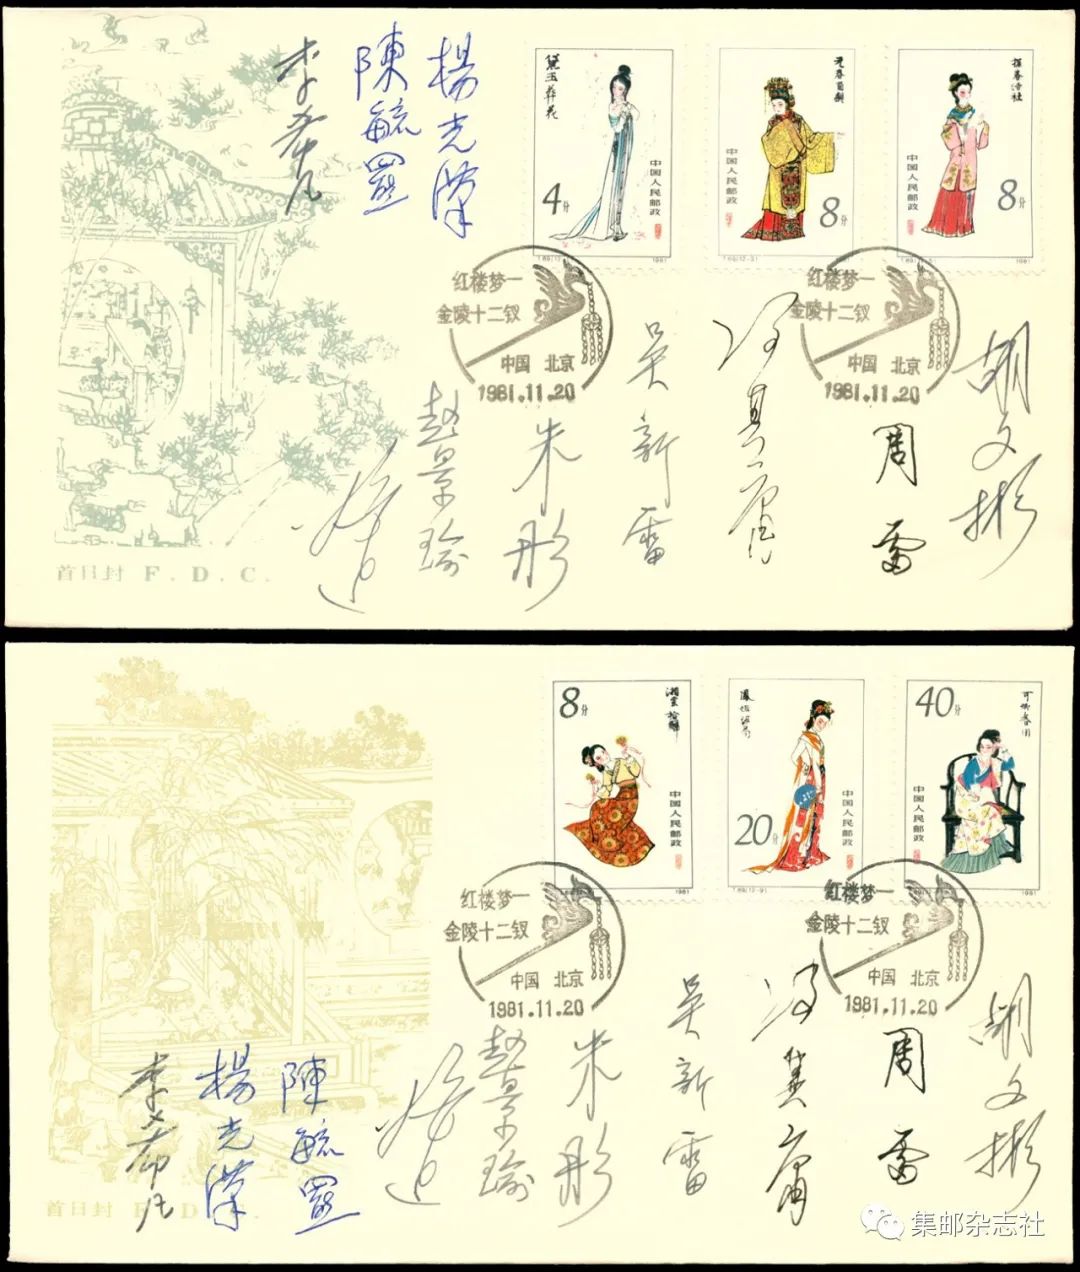 李希凡
陳毓罴
楊光漢
黛玉葬花
4分
中国人民邮政
T69(12-1)
1981
元春省親
8分
中国人民邮政
T69(12-3)
1981
探春結社
8分
中国人民邮政
1981
红楼梦—
金陵十二钗
中国 北京
1981.11.20
红楼梦—
金陵十二钗
中国 北京
1981.11.20
趙景瑜
朱彤
吴新雷
冯其庸
周雷
胡文彬
首日封 F.D.C.
8分
湘雲拾麟
中国人民邮政
1981
20分
中国人民邮政
T69(12-9)
1981
40分
可卿春困
中国人民邮政
1981
红楼梦—
金陵十二钗
中国 北京
1981.11.20
红楼梦—
金陵十二钗
中国 北京
1981.11.20
李希凡
楊光漢
陳毓罴
趙景瑜
朱彤
吴新雷
冯其庸
周雷
胡文彬
首日封 F.D.C.
集邮杂志社